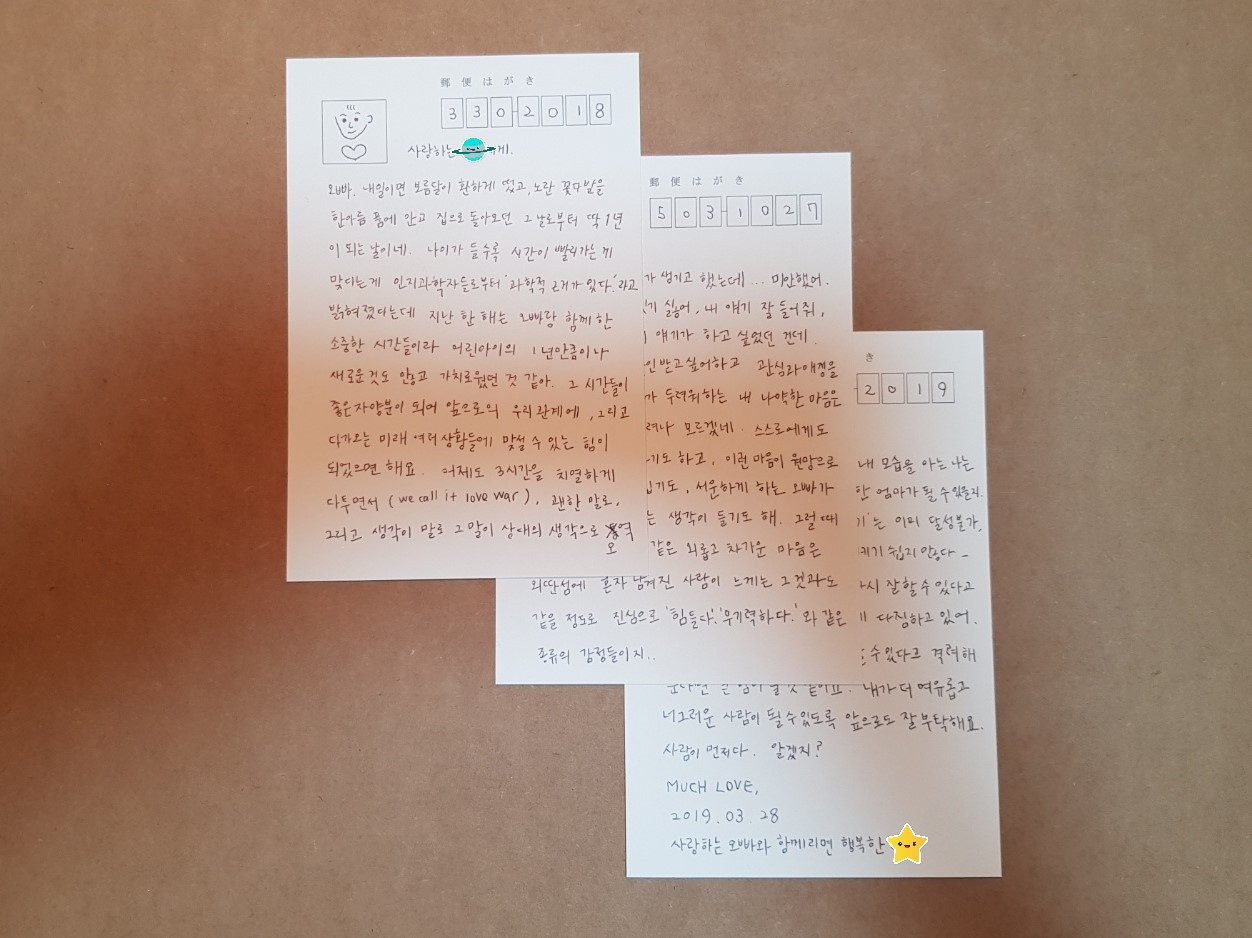 郵便はがき
330-2018
사랑하는 에게.
오빠. 내일이면 보름달이 환하게 떴고, 노란 꽃다발을
한아름 품에 안고 집으로 돌아오던 그 날로부터 딱 1년
이 되는 날이네. 나이가 들수록 시간이 빨리가는 게
맞다는게 인지과학자들로부터 '과학적 근거가 있다.'라고
밝혀졌다는데 지난 한 해는 오빠랑 함께 한
소중한 시간들이라 어린아이의 1년만큼이나
새로운것도 많고 가치로웠던 것 같아. 그 시간들이
좋은자양분이 되어 앞으로의 우리관계에, 그리고
다가오는 미래 여러 상황들에 맞설 수 있는 힘이
되었으면 해요. 어제도 3시간을 치열하게
다투면서 (we call it love war), 괜한 말로,
그리고 생각이 말로 그 말이 상대의 생각으로 오역
郵便はがき
503-1027
가 생기고 했는데... 미안했어.
있기 싫어, 내 얘기 잘 들어줘,
얘기가 하고 싶었던 건데.
인받고싶어하고 관심과애정을
가 두려워하는 내 나약한 마음은
려나 모르겠네. 스스로에게도
기도 하고, 이런 마음이 원망으로
기도, 서운하게 하는 오빠가
는 생각이 들기도 해. 그럴 때
같은 외롭고 차가운 마음은
외딴섬에 혼자 남겨진 사람이 느끼는 그것과도
같을 정도로 진심으로 '힘들다.' '무기력하다.'와 같은
종류의 감정들이지..
き
2019
내 모습을 아는 나는
한 엄마가 될 수 있을지.
기'는 이미 달성불가,
키기 쉽지 않다-
다시 잘할 수 있다고
다짐하고 있어.
수있다고 격려해
준다면 큰 힘이 될 것 같아요. 내가 더 여유롭고
너그러운 사람이 될 수 있도록 앞으로도 잘 부탁해요.
사람이 먼저다. 알겠지?
MUCH LOVE,
2019.03.28
사랑하는 오빠와 함께라면 행복한